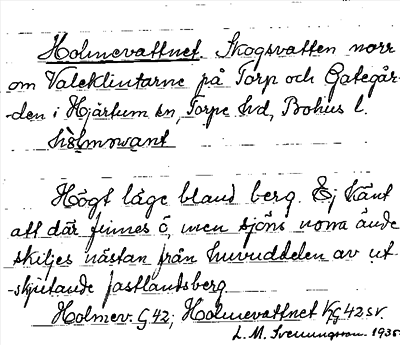 Holmevattnet. Skogsvatten norr
om Valeklintarne på Torp och Gategår-
-den i Hjärtum sn, Torpe hd, Bohus l.
hòlmowant
Högt läge bland berg. Ej känt
att där finnes ö, men sjöns norra ände
skiljes nästan från huvuddelen av ut-
-skjutande fastlandsberg
Holmev. G 42; Holmevattnet 42 sv.
L. M. Svenungsson. 1935